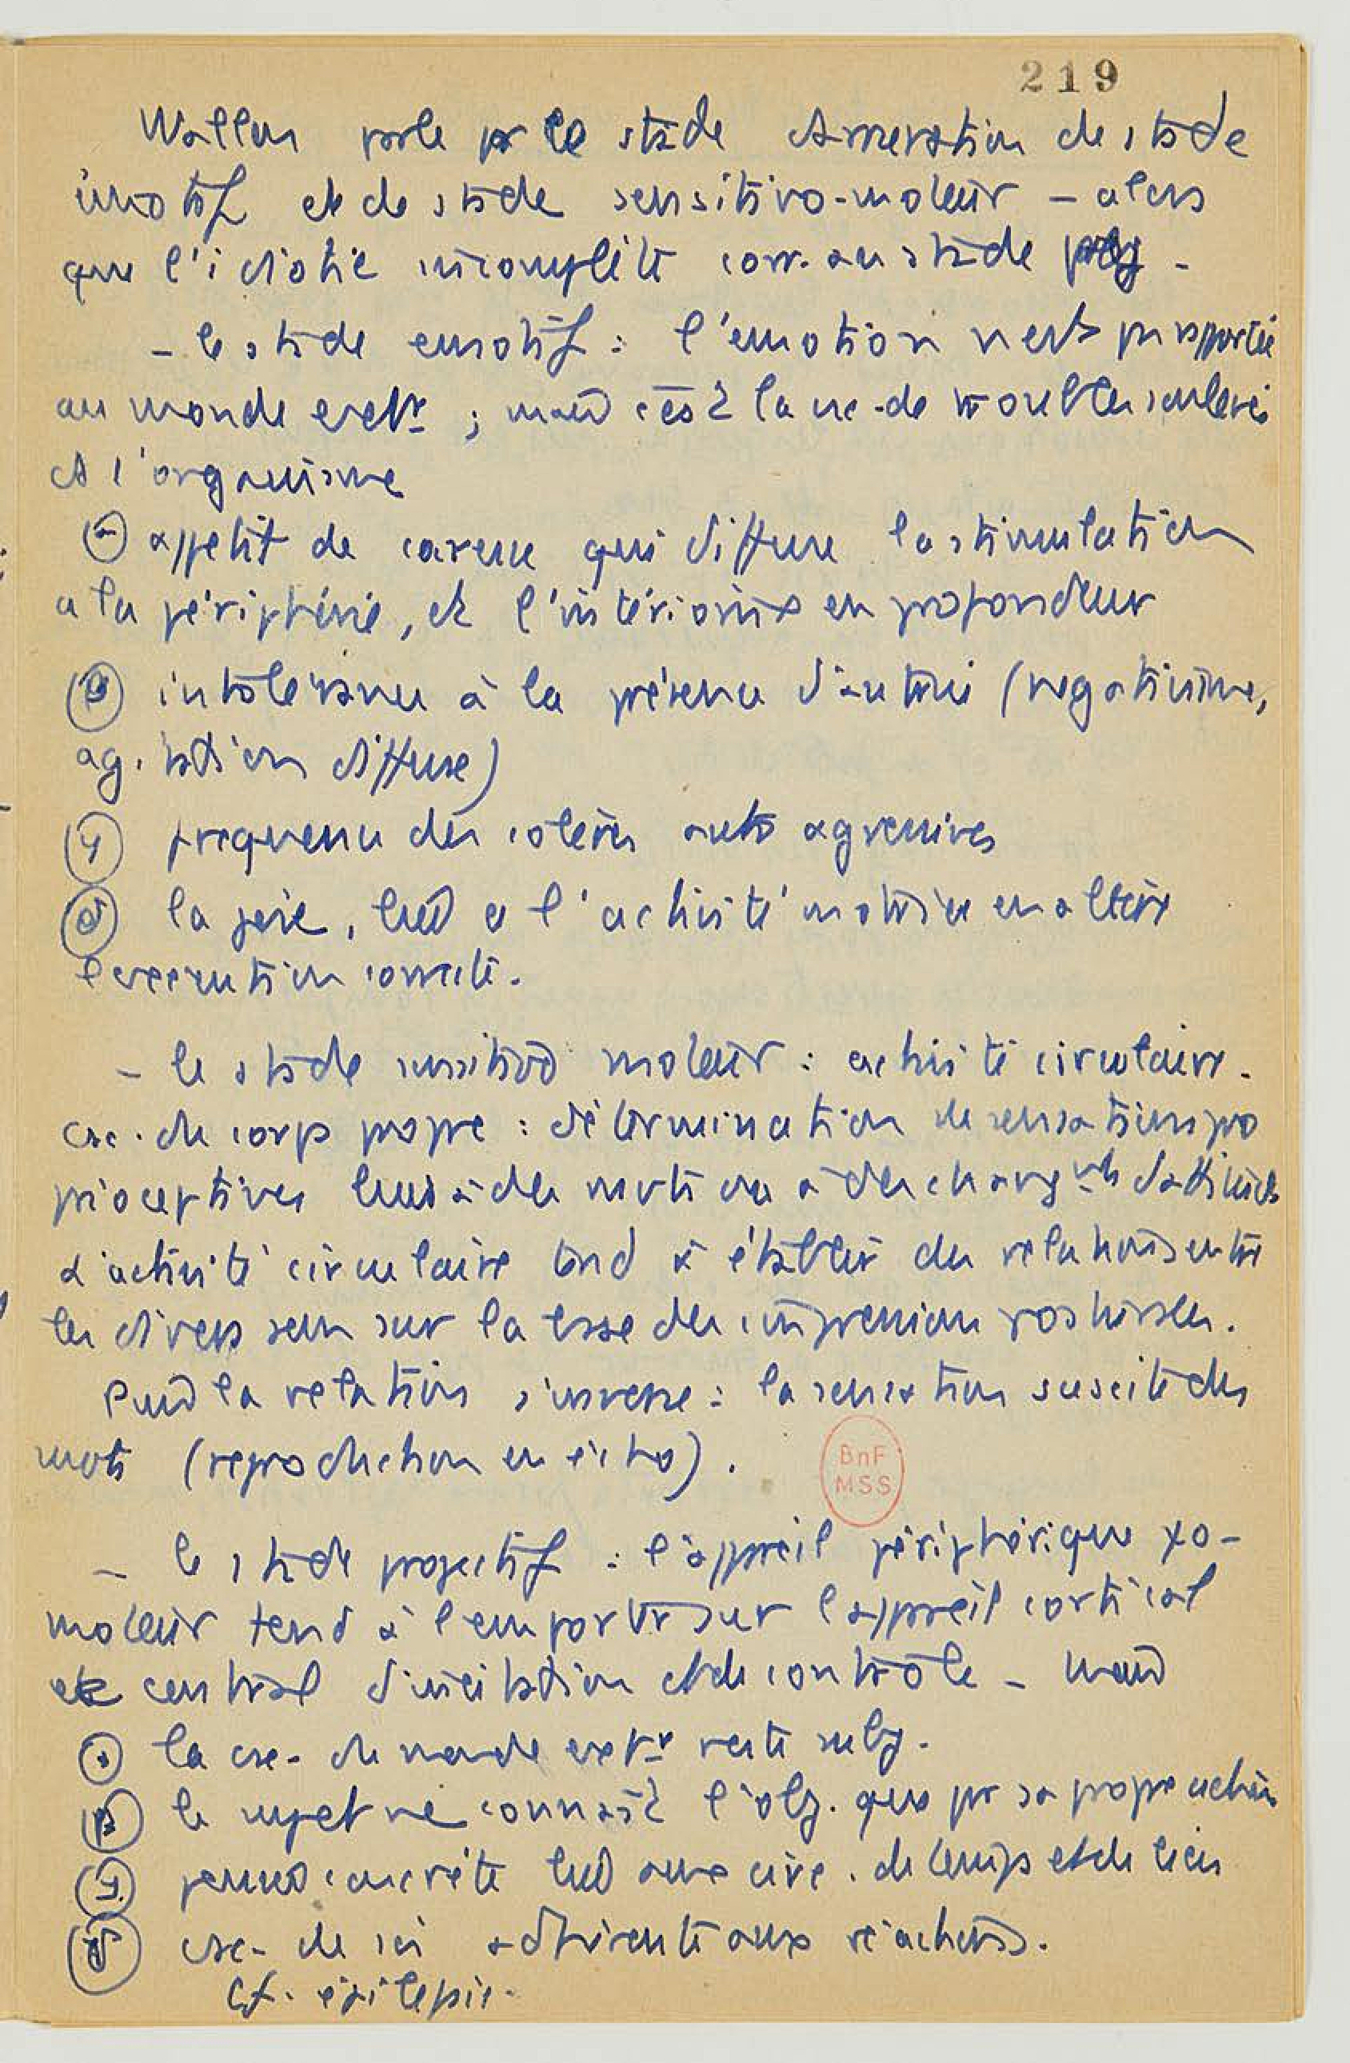 219
Wallon parle pr le stade d'arrieration de stade
émotif et de stade sensitivo-moteur – alors
que l'idiotie incomplète corr. au stade proj –
– le stade emotif : l'emotion n'est pas rapportée
au monde extr ; mais c'est la csc. de troubles soulevés
ds l'organisme
α appétit de caresse qui diffuse la stimulation
a la périphérie, et l'intériorise en profondeur
β intolérance à la présence d'autrui (negativisme,
agitation diffuse)
γ frequence des coleres auto agressives
δ la joie, liée a l'activité motrice en altère
l'execution correcte.
– le stade sensitivo moteur : activité circulaire.
csc. du corps propre : détermination de sensations pro
prioceptives liées à des mvts ou à des changts d'attitudes
L'activité circulaire tend à établir des relations entre
les divers sens sur la base des impressions posturales.
Puis la relation s'inverse : la sensation suscite des
mvts (reproduction en écho).
BnF
MSS
– le stade projectif : l'appareil périphérique
moteur tend à l'emporter sur l'appareil cortical
et central d'incitation et de contrôle – mais
α la csc. du monde extr reste subj.
β le sujet ne connaît l'obj. que par sa propre action
γ pensée concrète liée aux circ. de temps et de lieu
δ csc. de soi adhérente aux réactions.
Cf. épilepsie.